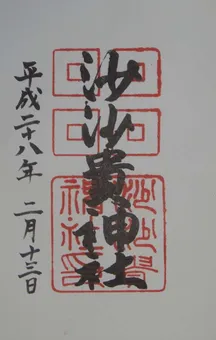 沙沙貴神社
平成二十八年 二月十三日
沙沙貴神社